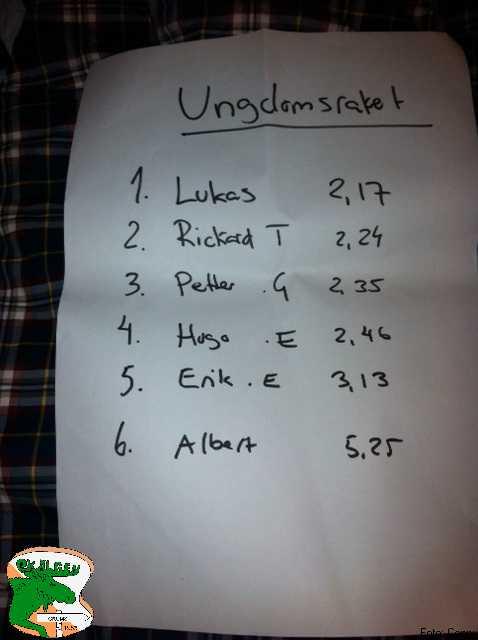 Ungdomsraket
1. Lukas 2,17
2. Rickard T 2,24
3. Petter .G 2,35
4. Hugo .E 2,46
5. Erik .E 3,13
6. Albert 5,25
Foto: